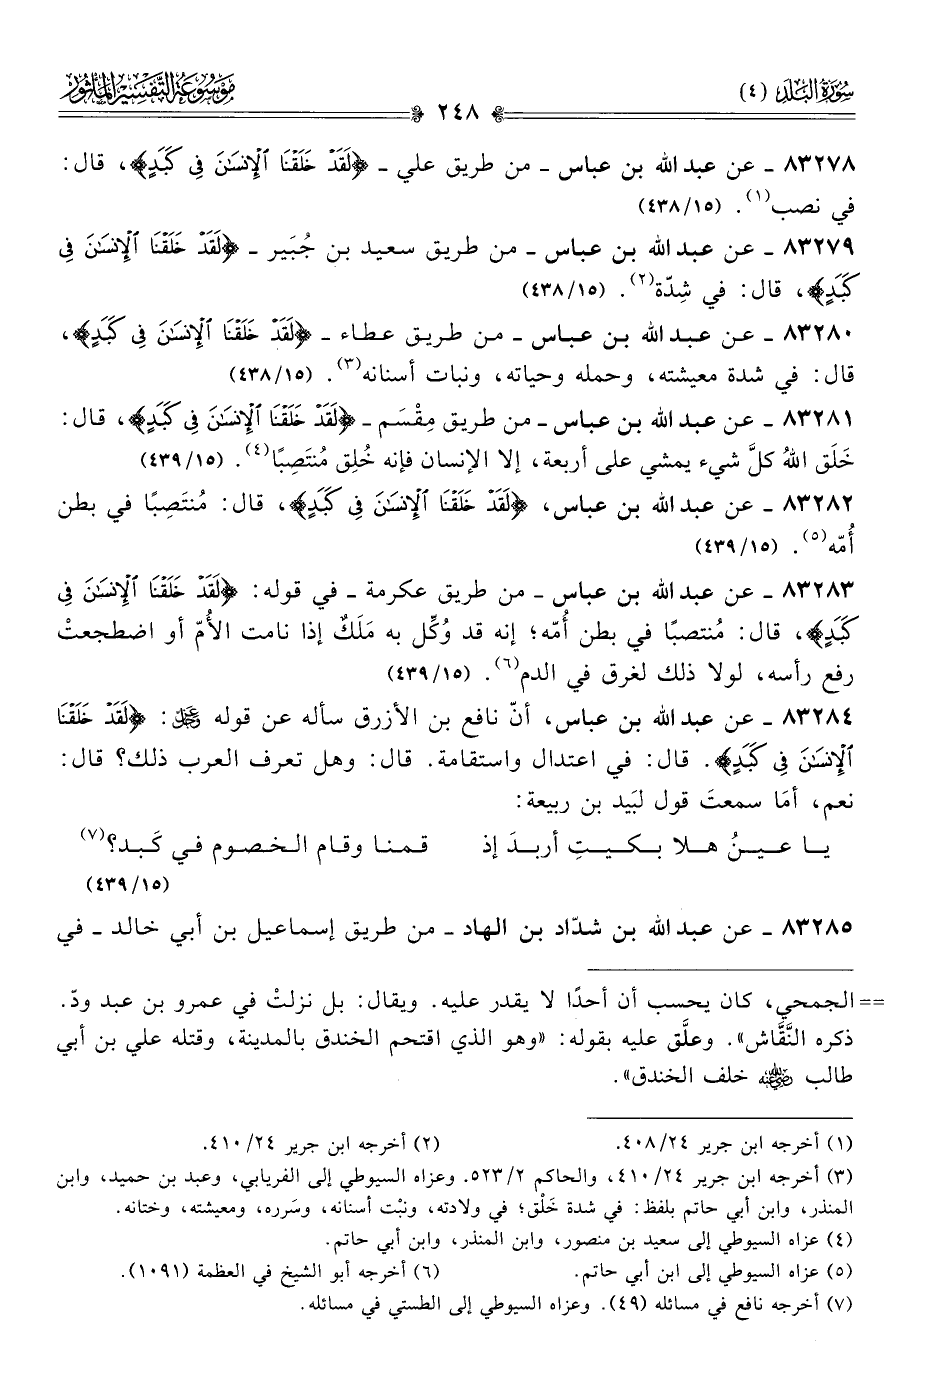 سورة البلد (٤)
موسوعة التفسير المأثور
٢٤٨
٨٣٢٧٨ ـ عن عبد الله بن عباس ـ من طريق علي ـ ﴿لَقَدْ خَلَقْنَا ٱلْإِنسَـٰنَ فِى كَبَدٍ﴾، قال:
في نصب(١). (٤٣٨/١٥)
٨٣٢٧٩ ـ عن عبد الله بن عباس ـ من طريق سعيد بن جُبَير ـ ﴿لَقَدْ خَلَقْنَا ٱلْإِنسَـٰنَ فِى
كَبَدٍ﴾، قال: في شِدّة(٢). (٤٣٨/١٥)
٨٣٢٨٠ ـ عن عبد الله بن عباس ـ من طريق عطاء ـ ﴿لَقَدْ خَلَقْنَا ٱلْإِنسَـٰنَ فِى كَبَدٍ﴾،
قال: في شدة معيشته، وحمله وحياته، ونبات أسنانه(٣). (٤٣٨/١٥)
٨٣٢٨١ ـ عن عبد الله بن عباس ـ من طريق مِقْسَم ـ ﴿لَقَدْ خَلَقْنَا ٱلْإِنسَـٰنَ فِى كَبَدٍ﴾، قال:
خَلَق اللهُ كلَّ شيء يمشي على أربعة، إلا الإنسان فإنه خُلِق مُنتَصِبًا(٤). (٤٣٩/١٥)
٨٣٢٨٢ ـ عن عبد الله بن عباس، ﴿لَقَدْ خَلَقْنَا ٱلْإِنسَـٰنَ فِى كَبَدٍ﴾، قال: مُنتَصِبًا في بطن
أُمّه(٥). (٤٣٩/١٥)
٨٣٢٨٣ ـ عن عبد الله بن عباس ـ من طريق عكرمة ـ في قوله: ﴿لَقَدْ خَلَقْنَا ٱلْإِنسَـٰنَ فِى
كَبَدٍ﴾، قال: مُنتصبًا في بطن أُمّه؛ إنه قد وُكِّل به مَلَكٌ إذا نامت الأُمّ أو اضطجعتْ
رفع رأسه، لولا ذلك لغرق في الدم(٦). (٤٣٩/١٥)
٨٣٢٨٤ ـ عن عبد الله بن عباس، أنّ نافع بن الأزرق سأله عن قوله ﷿: ﴿لَقَدْ خَلَقْنَا
ٱلْإِنسَـٰنَ فِى كَبَدٍ﴾. قال: في اعتدال واستقامة. قال: وهل تعرف العرب ذلك؟ قال:
نعم، أمَا سمعتَ قول لبَيد بن ربيعة:
يا عينُ هلا بكيتِ أربدَ إذ قمنا وقام الخصوم في كَبد؟(٧)
(٤٣٩/١٥)
٨٣٢٨٥ ـ عن عبد الله بن شدّاد بن الهاد ـ من طريق إسماعيل بن أبي خالد ـ في
== الجمحي، كان يحسب أن أحدًا لا يقدر عليه. ويقال: بل نزلتْ في عمرو بن عبد ودّ.
ذكره النَّقَّاش». وعلَّق عليه بقوله: «وهو الذي اقتحم الخندق بالمدينة، وقتله علي بن أبي
طالب رضي الله عنه خلف الخندق».
(١) أخرجه ابن جرير ٤٠٨/٢٤. (٢) أخرجه ابن جرير ٤١٠/٢٤.
(٣) أخرجه ابن جرير ٤١٠/٢٤، والحاكم ٥٢٣/٢. وعزاه السيوطي إلى الفريابي، وعبد بن حميد، وابن
المنذر، وابن أبي حاتم بلفظ: في شدة خَلْق؛ في ولادته، ونبْت أسنانه، وسَرره، ومعيشته، وختانه.
(٤) عزاه السيوطي إلى سعيد بن منصور، وابن المنذر، وابن أبي حاتم.
(٥) عزاه السيوطي إلى ابن أبي حاتم. (٦) أخرجه أبو الشيخ في العظمة (١٠٩١).
(٧) أخرجه نافع في مسائله (٤٩). وعزاه السيوطي إلى الطستي في مسائله.